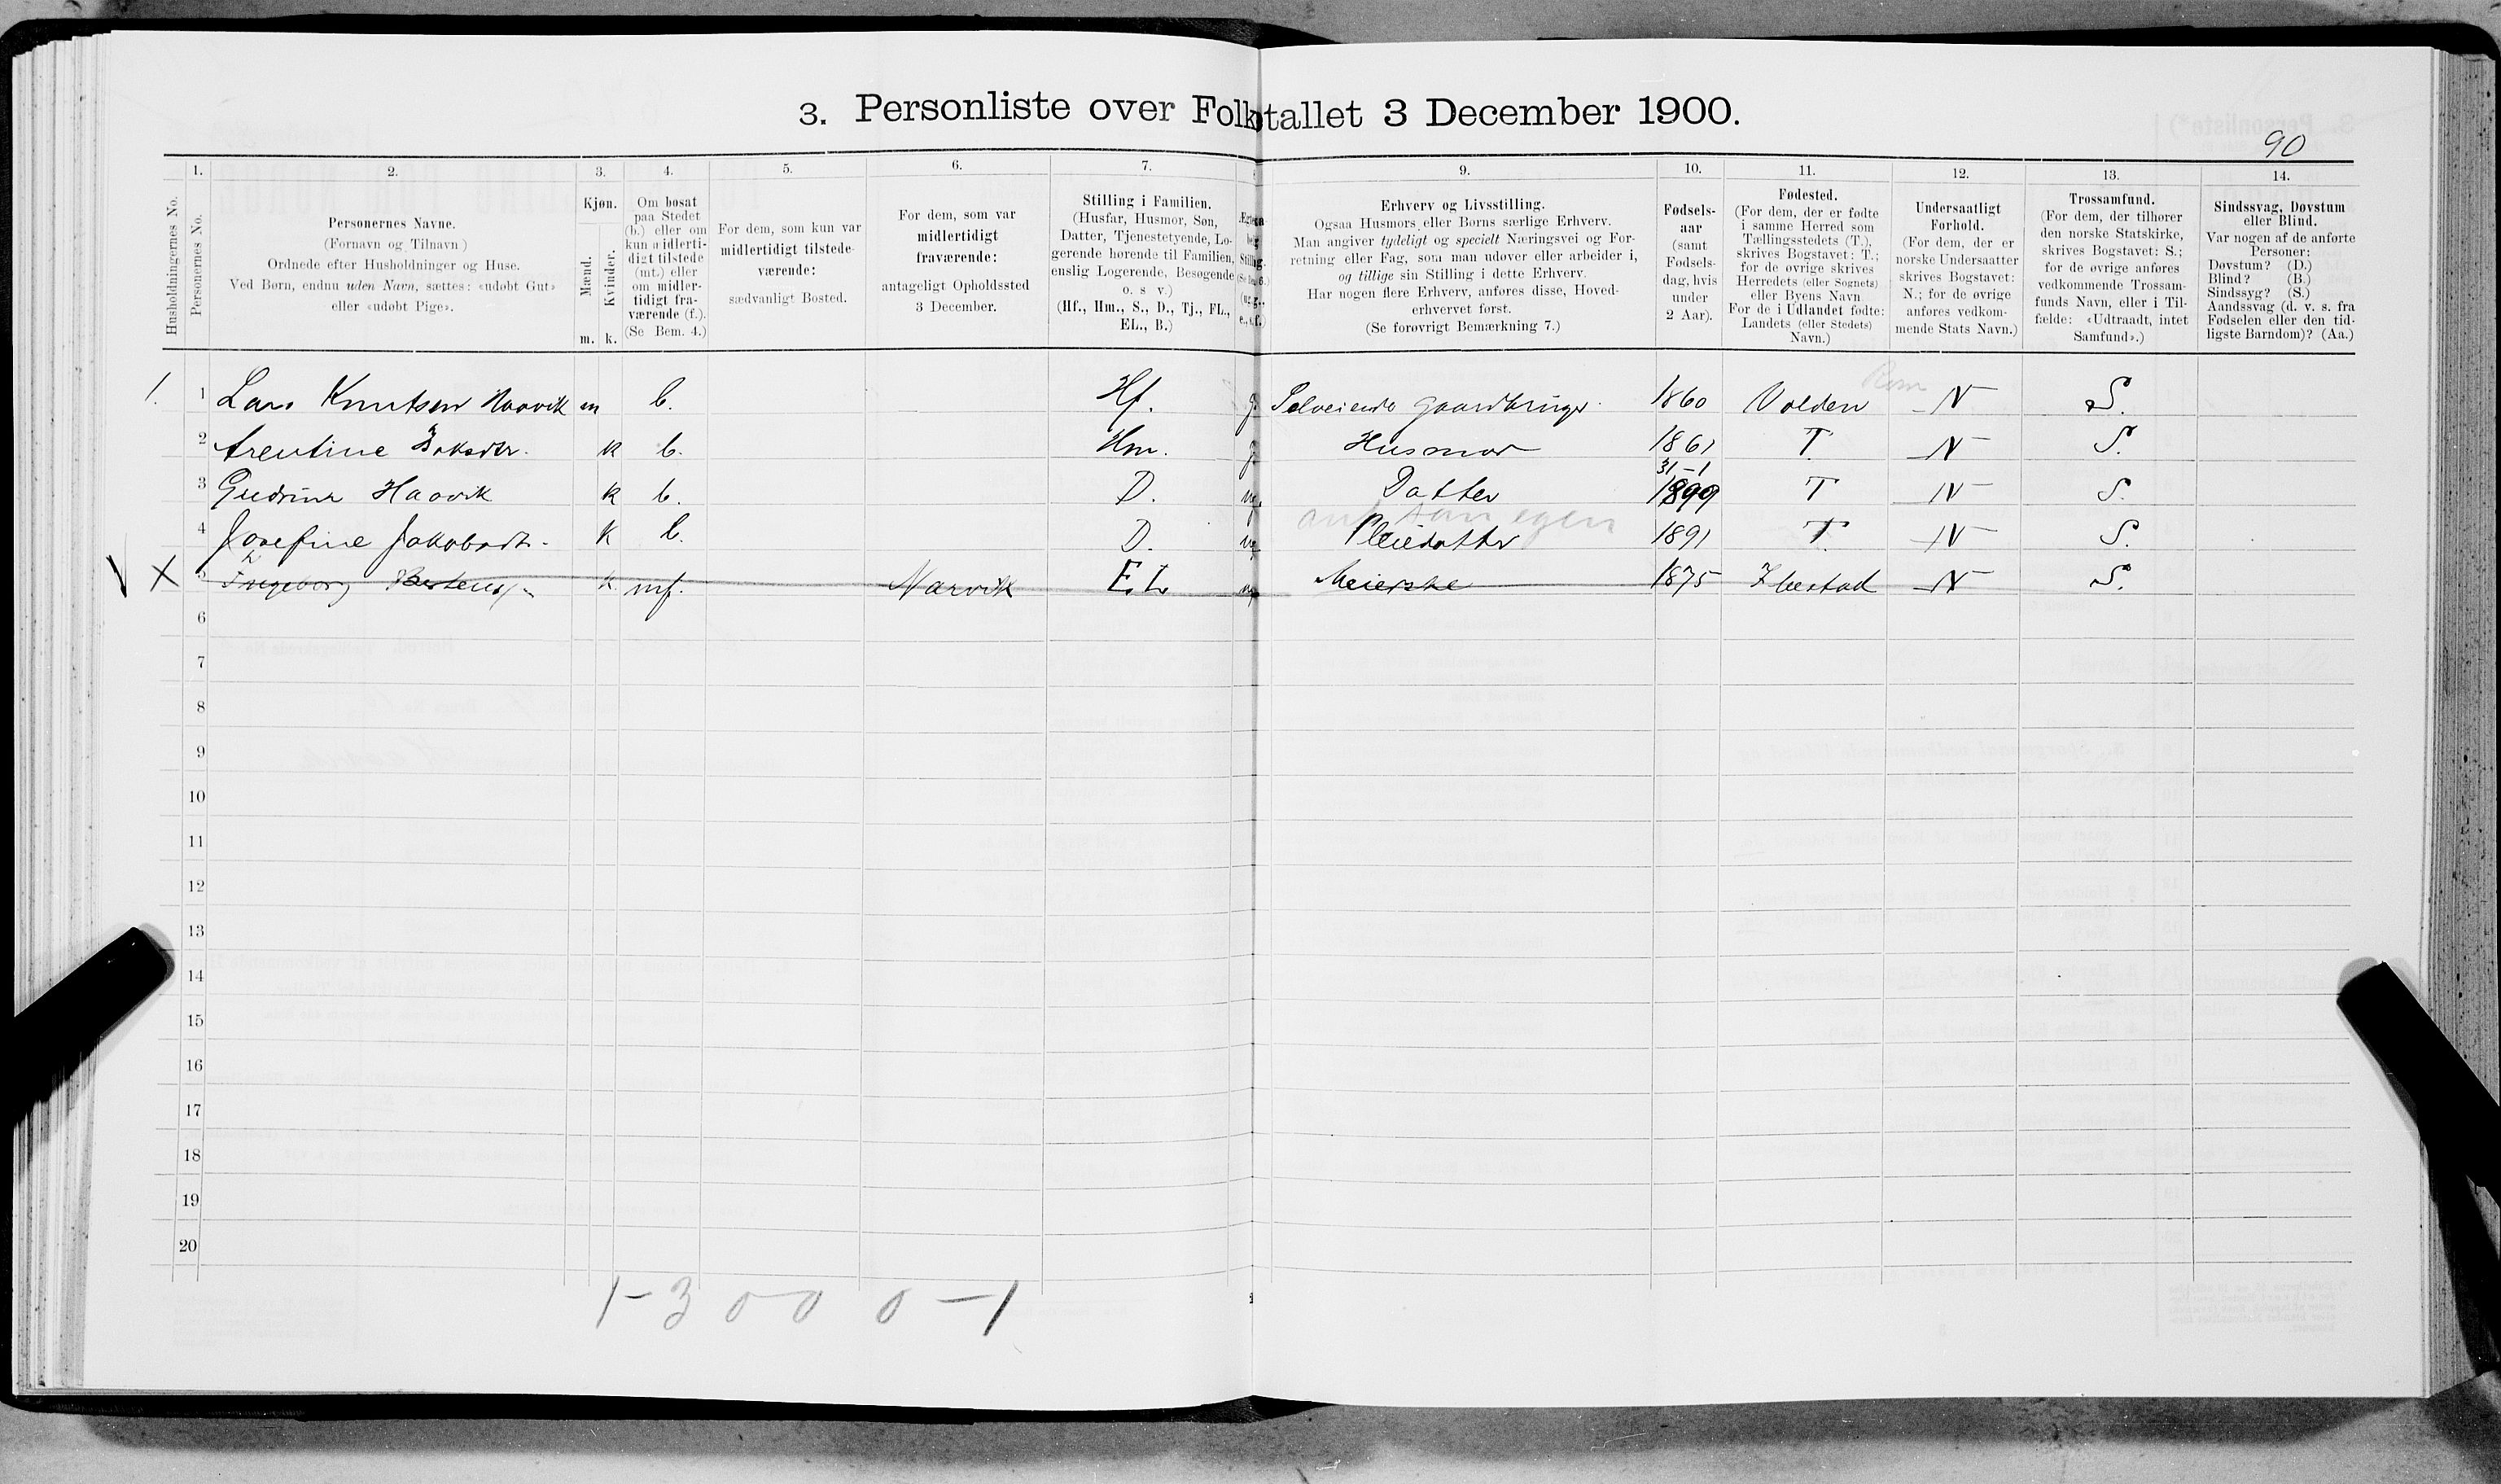 3. Personliste over Folketallet 3 December 1900.
90
Husholdningernes No.
1.
Personernes No.
2.
Personernes Navne.
(Fornavn og Tilnavn)
Ordnede efter Husholdninger og Huse.
Ved Børn, endnu uden Navn, sættes: «udøbt Gut»
eller «udøbt Pige».
3.
Kjøn.
Mænd.
Kvinder.
m. k.
4.
Om bosat
paa Stedet
(b.) eller om
kun midlerti-
digt tilstede
(mt.) eller
om midler-
tidigt fra-
værende (f.).
(Se Bem. 4.)
5.
For dem, som kun var
midlertidigt tilstede-
værende:
sædvanligt Bosted.
6.
For dem, som var
midlertidigt
fraværende:
antageligt Opholdssted
3 December.
7.
Stilling i Familien.
(Husfar, Husmor, Søn,
Datter, Tjenestetyende, Lo-
gerende hørende til Familien,
enslig Logerende, Besøgende
o. s v.)
(Hf., Hm., S., D., Tj., FL.,
EL., B.)
9.
Erhverv og Livsstilling.
Ogsaa Husmors eller Børns særlige Erhverv.
Man angiver tydeligt og specielt Næringsvei og For-
retning eller Fag, som man udøver eller arbeider i,
og tillige sin Stilling i dette Erhverv.
Har nogen flere Erhverv, anføres disse, Hoved-
erhvervet først.
(Se forøvrigt Bemærkning 7.)
10.
Fødsels-
aar
(samt
Fødsels-
dag, hvis
under
2 Aar).
11.
Fødested.
(For dem, der er fødte
i samme Herred som
Tællingsstedets (T.),
skrives Bogstavet: T.;
for de øvrige skrives
Herredets (eller Sognets)
eller Byens Navn
For de i Udlandet fødte:
Landets (eller Stedets)
Navn.)
12.
Undersaatligt
Forhold.
(For dem, der er
norske Undersaatter
skrives Bogstavet:
N.; for de øvrige
anføres vedkom-
mende Stats Navn.)
13.
Trossamfund.
(For dem, der tilhører
den norske Statskirke,
skrives Bogstavet: S.;
for de øvrige anføres
vedkommende Trossam-
funds Navn, eller i Til-
fælde: «Udtraadt, intet
Samfund».)
14.
Sindssvag, Døvstum
eller Blind.
Var nogen af de anførte
Personer:
Døvstum? (D.)
Blind? (B.)
Sindssyg? (S.)
Aandssvag (d. v. s. fra
Fødselen eller den tid-
ligste Barndom)? (Aa.)
1. 1 Lars Knutsen Haavik m b. Hf. g. Selveiende Gaardbruger. 1860 Volden N S.
2 Arentine k b. Hm. g. Husmor 1861 T N S.
31-1
3 Gudrun Haavik k b. D. ug. Datter 1899 T N S.
4 Josefine Jakobsdt. k b. D. ug. Pleiedatter 1891 T. N S.
V X 5 Ingeborg k mf. Narvik E.L. ug Meierske 1875 Ibestad N S.
6
7
8
9
10
11
12
13
14
15
16
17
18
19
20
1-3 0 0 0 -1